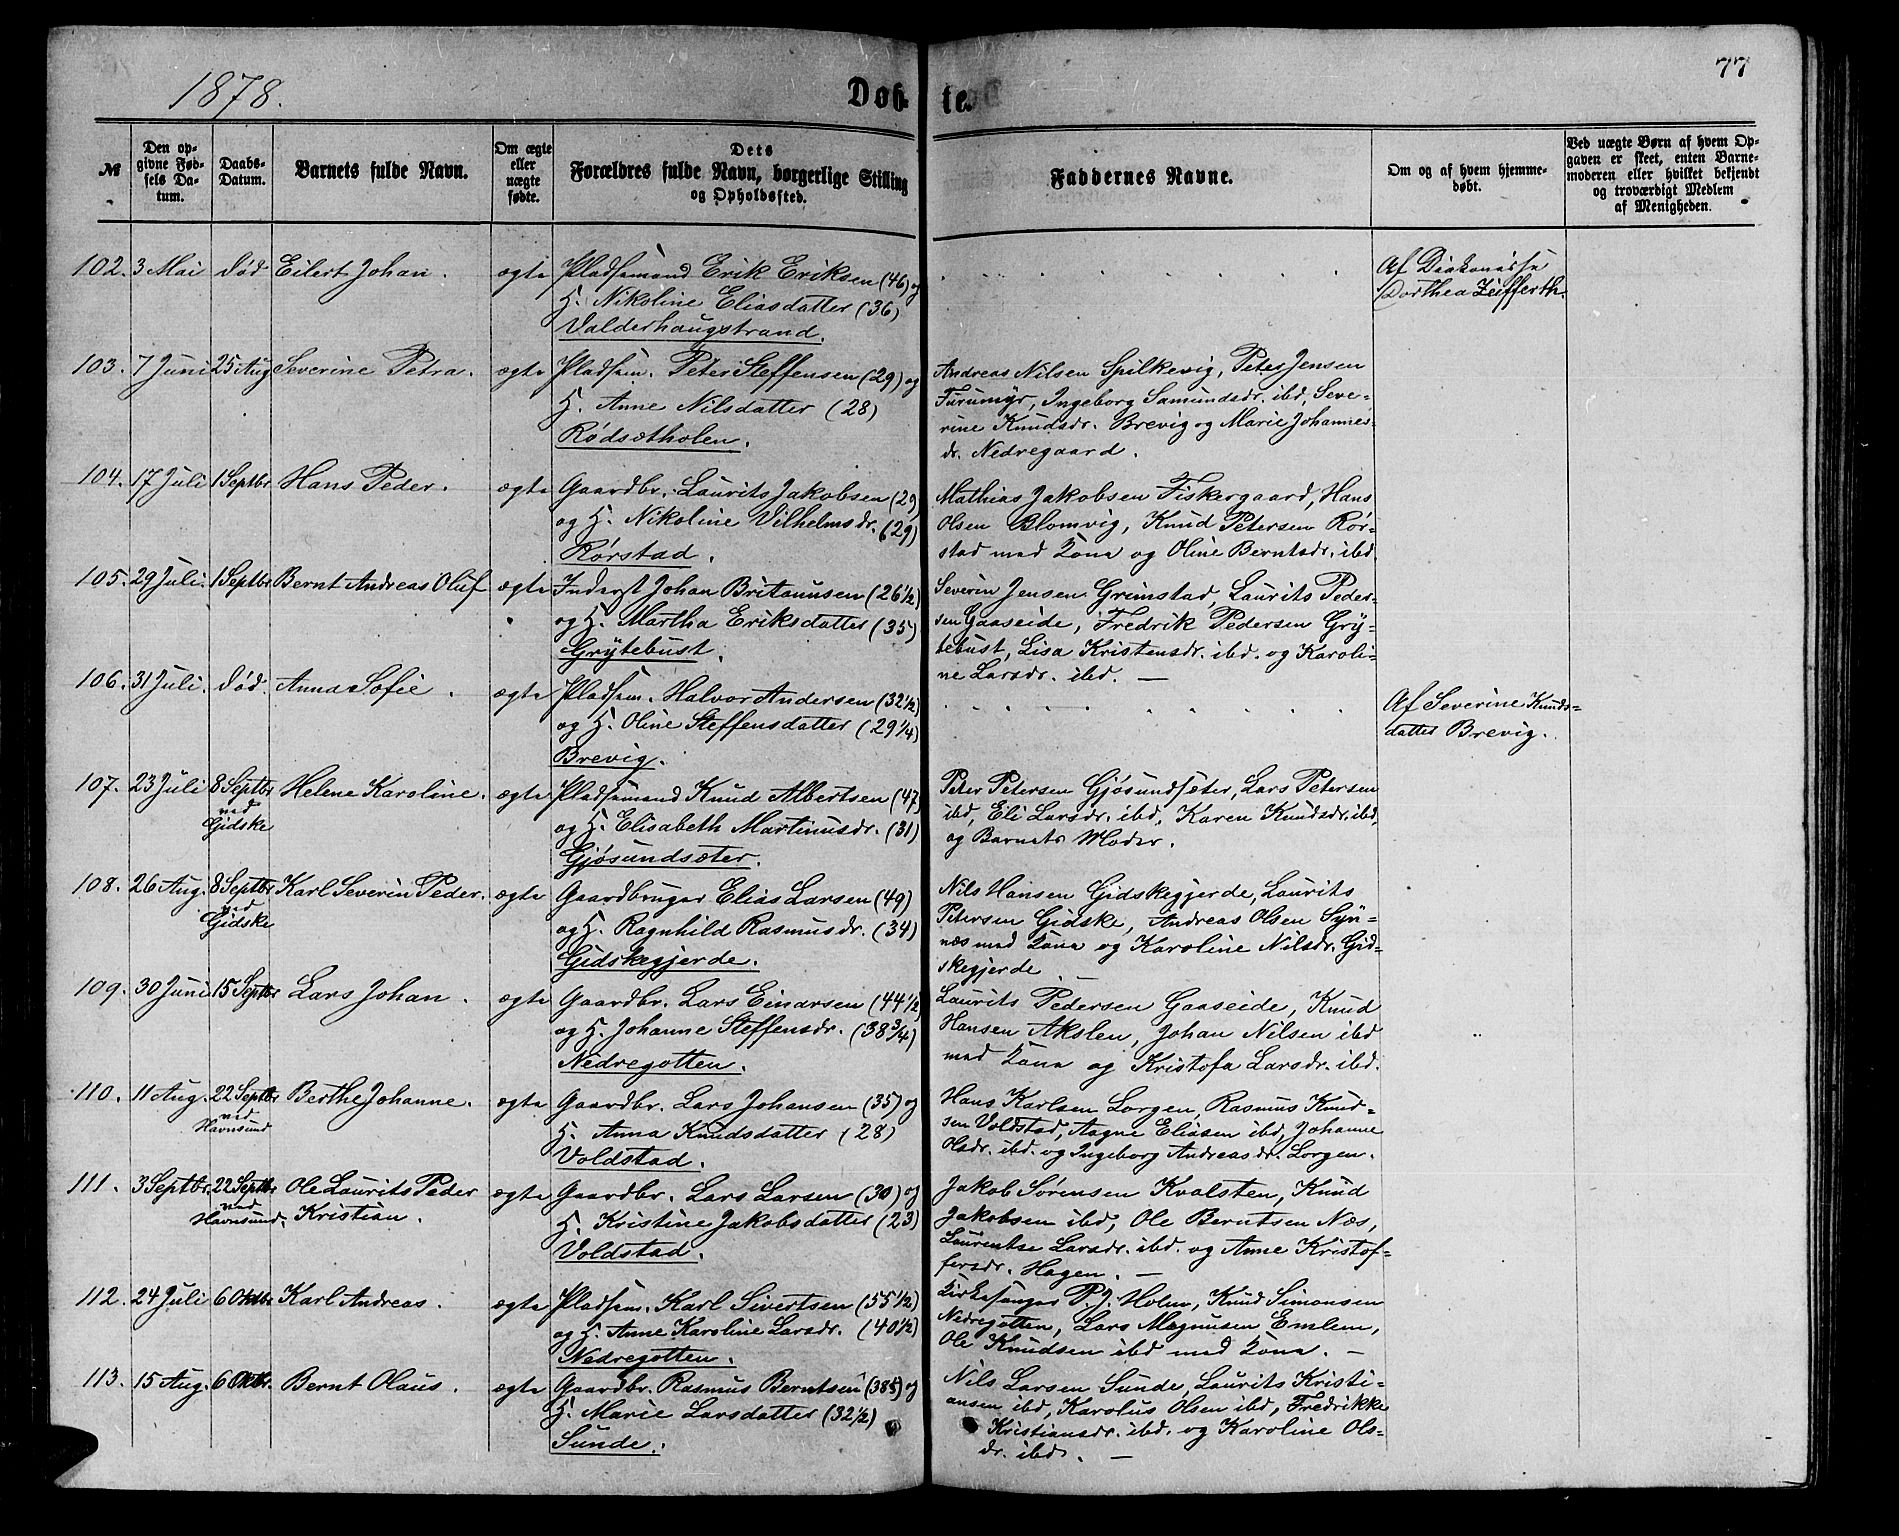 1878.
Døb
te.
77
№
Den opgivne Fødsels Datum.
Daabs-Datum.
Barnets fulde Navn.
Om ægte eller uægte fødte.
Dets Forældres fulde Navn, borgerlige Stilling og Opholdssted.
Faddernes Navne.
Om og af hvem hjemmedøbt.
Ved uægte Børn af hvem Opgaven er skeet, enten Barnemoderen eller hvilket bekjendt og troværdigt Medlem af Menigheden.
102. 3 Mai død Eilert Johan. ægte Pladsemand Erik Eriksen (46) og
H. Nikoline Eliasdatter (36)
Valderhaugstrand.
Af Diakonisse
Dorthea Zeifferth.
103. 7 Juni 25 Aug Severine Petra. ægte Pladsem. Peter Steffensen (29) og
H. Anne Nilsdatter (28)
Rødsætholen.
Andreas Nilsen Spilkevig, Peter Jensen
Furumyr, Ingeborg Samundsdr. ibd, Seve-
rine Knudsdr. Brevig og Marie Johannes-
dr. Nedregaard.
104. 17 Juli 1 Septbr Hans Peder. ægte Gaardbr. Laurits Jakobsen (29)
og H. Nikoline Vilhelmsdr. (29)
Rørstad.
Mathias Jakobsen Fiskergaard, Hans
Olsen Blomvig, Knud Petersen Rør-
stad med Kone og Oline Berntsdr. ibd
105. 29 Juli. 1 Septbr Bernt Andreas Oluf ægte Inderst Johan Britanusen (26½)
og H. Martha Eriksdatter (35)
Grytebust.
Severin Jensen Grimstad, Laurits Peder-
sen Gaaseide, Fredrik Pedersen Gry-
tebust, Lisa Kristensdr. ibd. og Karoli-
ne Larsdr. ibd. —
106. 31 Juli. død. Anna Sofie. ægte Pladsem. Halvor Andersen (32½)
og H. Oline Steffensdatter (29¼)
Brevig.
Af Severine Knuds-
datter Brevig.
107. 23 Juli 8 Septbr ved Gidske Helene Karoline. ægte Pladsemand Knud Albertsen (47)
og H. Elisabeth Martinusdr. (31)
Gjøsundsæter.
Peter Petersen Gjøsundsæter, Lars Petersen
ibd, Eli Larsdr. ibd, Karen Knudsdr. ibd,
og Barnets Moder.
108. 26 Aug. 8 Septbr ved Gidske Karl Severin Peder. ægte Gaardbruger Elias Larsen (49)
og H. Ragnhild Rasmusdr. (34)
Gidskegjerde.
Nils Hansen Gidskegjerde, Laurits
Petersen Gidske, Andreas Olsen Syn-
næs med Kone og Karoline Nilsdr. Gid-
skegjerde
109. 30 Juni 15 Septbr Lars Johan. ægte Gaardbr. Lars Einarsen (44½)
og H. Johanne Steffensdr. (38¾)
Nedregotten.
Laurits Pedersen Gaaseide, Knud
Hansen Akslen, Johan Nilsen ibd
med Kone og Kristofa Larsdr. ibd.
110. 11 Aug. 22 Septbr ved Havnsund Berthe Johanne. ægte Gaardbr. Lars Johansen (35) og
H. Anna Knudsdatter (28)
Voldstad.
Hans Karlsen Lorgen, Rasmus Knud-
sen Voldstad, Aagne Eliasen ibd, Johanne
Olsdr. ibd. og Ingeborg Andreasdr. Lorgen.
111. 3 Septbr. 22 Septbr ved Havnsund. Ole Laurits Peder
Kristian. ægte Gaardbr. Lars Larsen (30) og
H. Kristine Jakobsdatter (23)
Voldstad.
Jakob Sørensen Kvalsten, Knud
Jakobsen ibd, Ole Berntsen Næs,
Laurentse Larsdr. ibd. og Anne Kristof-
fersdr. Hagen. —
112. 24 Juli 6 Oktbr Karl Andreas. ægte Pladsem. Karl Sivertsen (55½)
og H. Anne Karoline Larsdr. (40½)
Nedregotten.
Kirkesanger P. J. Holm, Knud Simonsen
Nedregotten, Lars Magnusen Emlem,
Ole Knudsen ibd med Kone. —
113. 15 Aug. 6 Oktbr. Bernt Olaus. ægte Gaardbr. Rasmus Berntsen og
H. Marie Larsdatter (32½)
Sunde.
Nils Larsen Sunde, Laurits Kristi-
ansen ibd, Karolus Olsen ibd, Fredrikke
Kristiansdr. ibd. og Karoline Ols-
dr. ibd. —